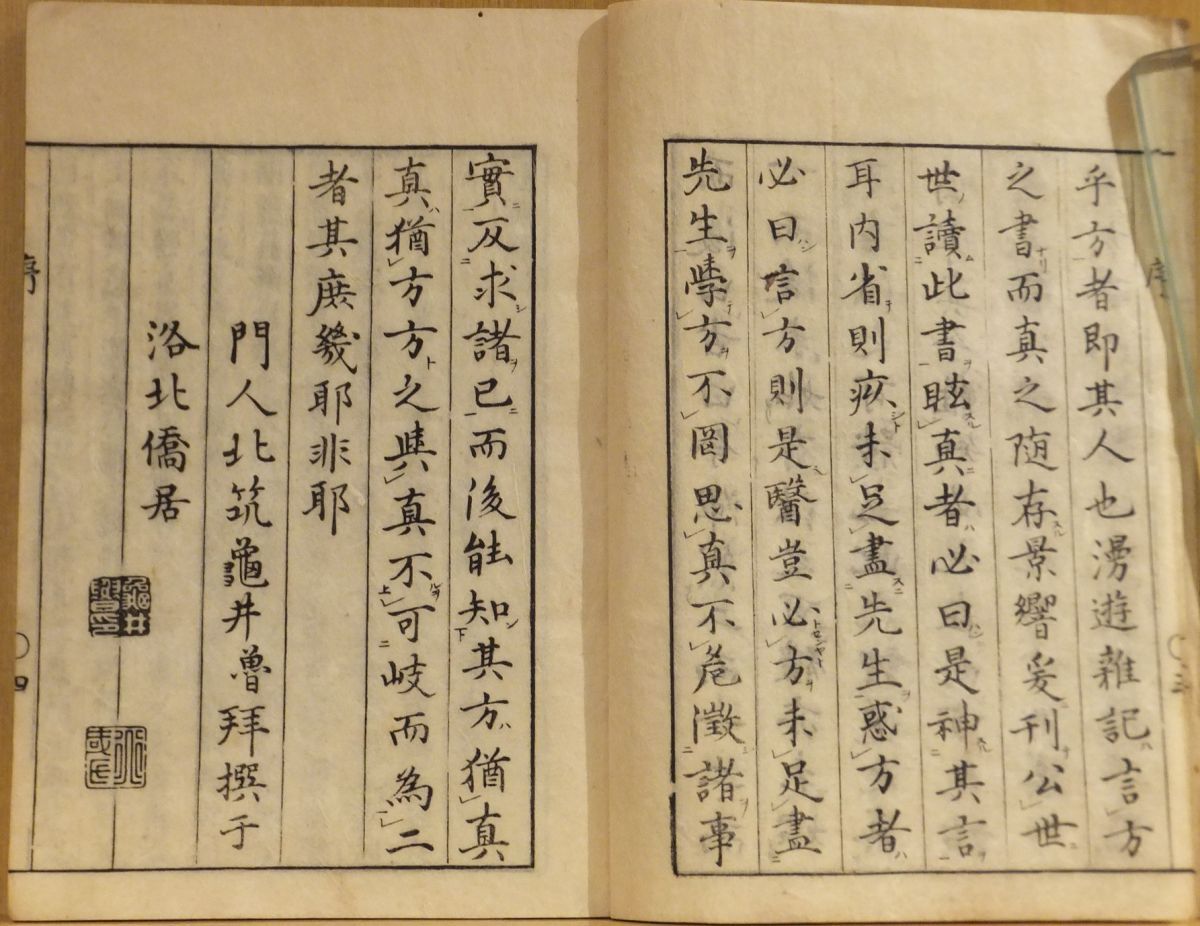 乎方者即其人也漫遊雜記言方
之書而真之随存景響爰刊公世
世讀此書眩真者必曰是神其言
耳内省則疚未足盡先生惑方者
必曰言方則是醫豈必方未足盡
先生學方不罔思真不危徵諸事
實反求諸已而後能知其方猶真
真猶方方之與真不可岐而為二
者其庶幾耶非耶
門人北筑龜井魯拜撰于
洛北僑居
序
〇三
序
〇四
龜井魯印